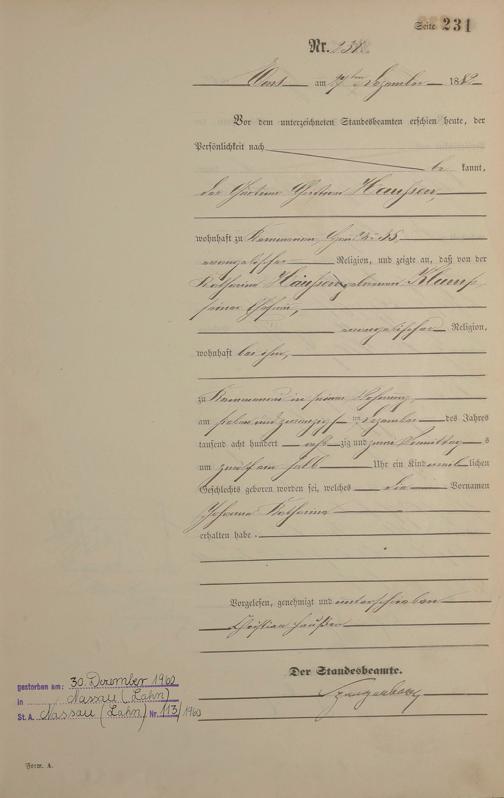 Seite 231
Nr. 238
Ems am 27ten Dezember 1882
Vor dem unterzeichneten Standesbeamten erschien heute, der
Persönlichkeit nach
be kannt,
der Christian Haußen,
wohnhaft zu Kemmenau,
evangelischer Religion, und zeigte an, daß von der
Katharina Haußen, geborenen Klump,
seiner Ehefrau,
evangelischer Religion,
wohnhaft bei ihm,
zu Kemmenau in seiner Wohnung
am sieben und zwanzigsten Dezember des Jahres
tausend acht hundert acht zig und zwei Vormittag s
um zwölf ein halb Uhr ein Kind weib lichen
Geschlechts geboren worden sei, welches die Vornamen
Johanna Katharina
erhalten habe.
Vorgelesen, genehmigt und unterschrieben
Christian Haußen
Der Standesbeamte.
gestorben am: 30. Dezember 1960
in Nassau (Lahn)
St. A. Nassau (Lahn) Nr. 113/1960
Form. A.